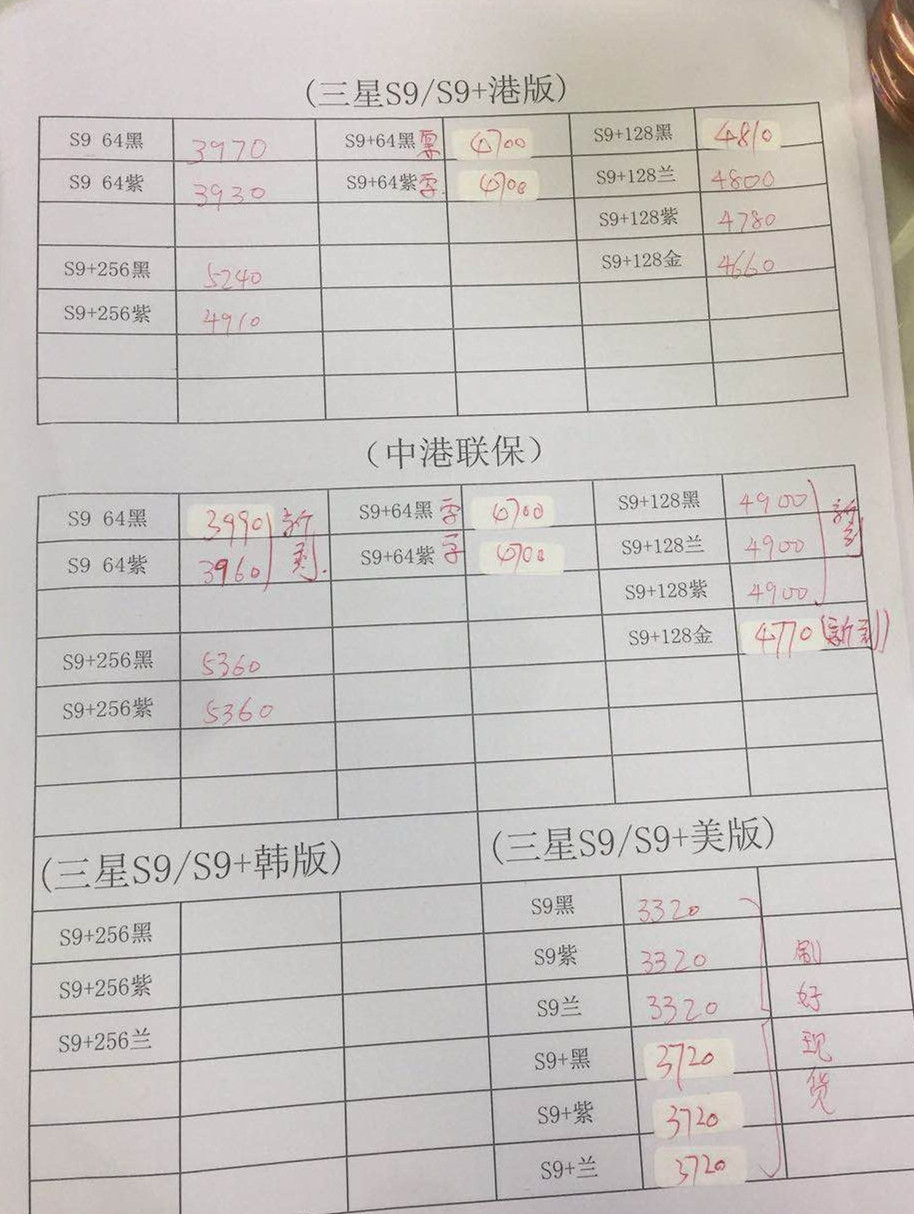 (三星S9/S9+港版)
S9 64黑 3970 S9+64黑 4700 S9+128黑 4810
S9 64紫 3930 S9+64紫 4700 S9+128兰 4800
S9+128紫 4780
S9+256黑 5240 S9+128金 4660
S9+256紫 4910
(中港联保)
S9 64黑 3990 S9+64黑 4700 S9+128黑 4900
S9 64紫 3960 S9+64紫 4700 S9+128兰 4900
S9+128紫 4900
S9+256黑 5360 S9+128金 4770
S9+256紫 5360
(三星S9/S9+韩版) (三星S9/S9+美版)
S9+256黑 S9黑 3320
S9+256紫 S9紫 3320 刷
S9+256兰 S9兰 3320 好
S9+黑 3720 现
S9+紫 3720 货
S9+兰 3720